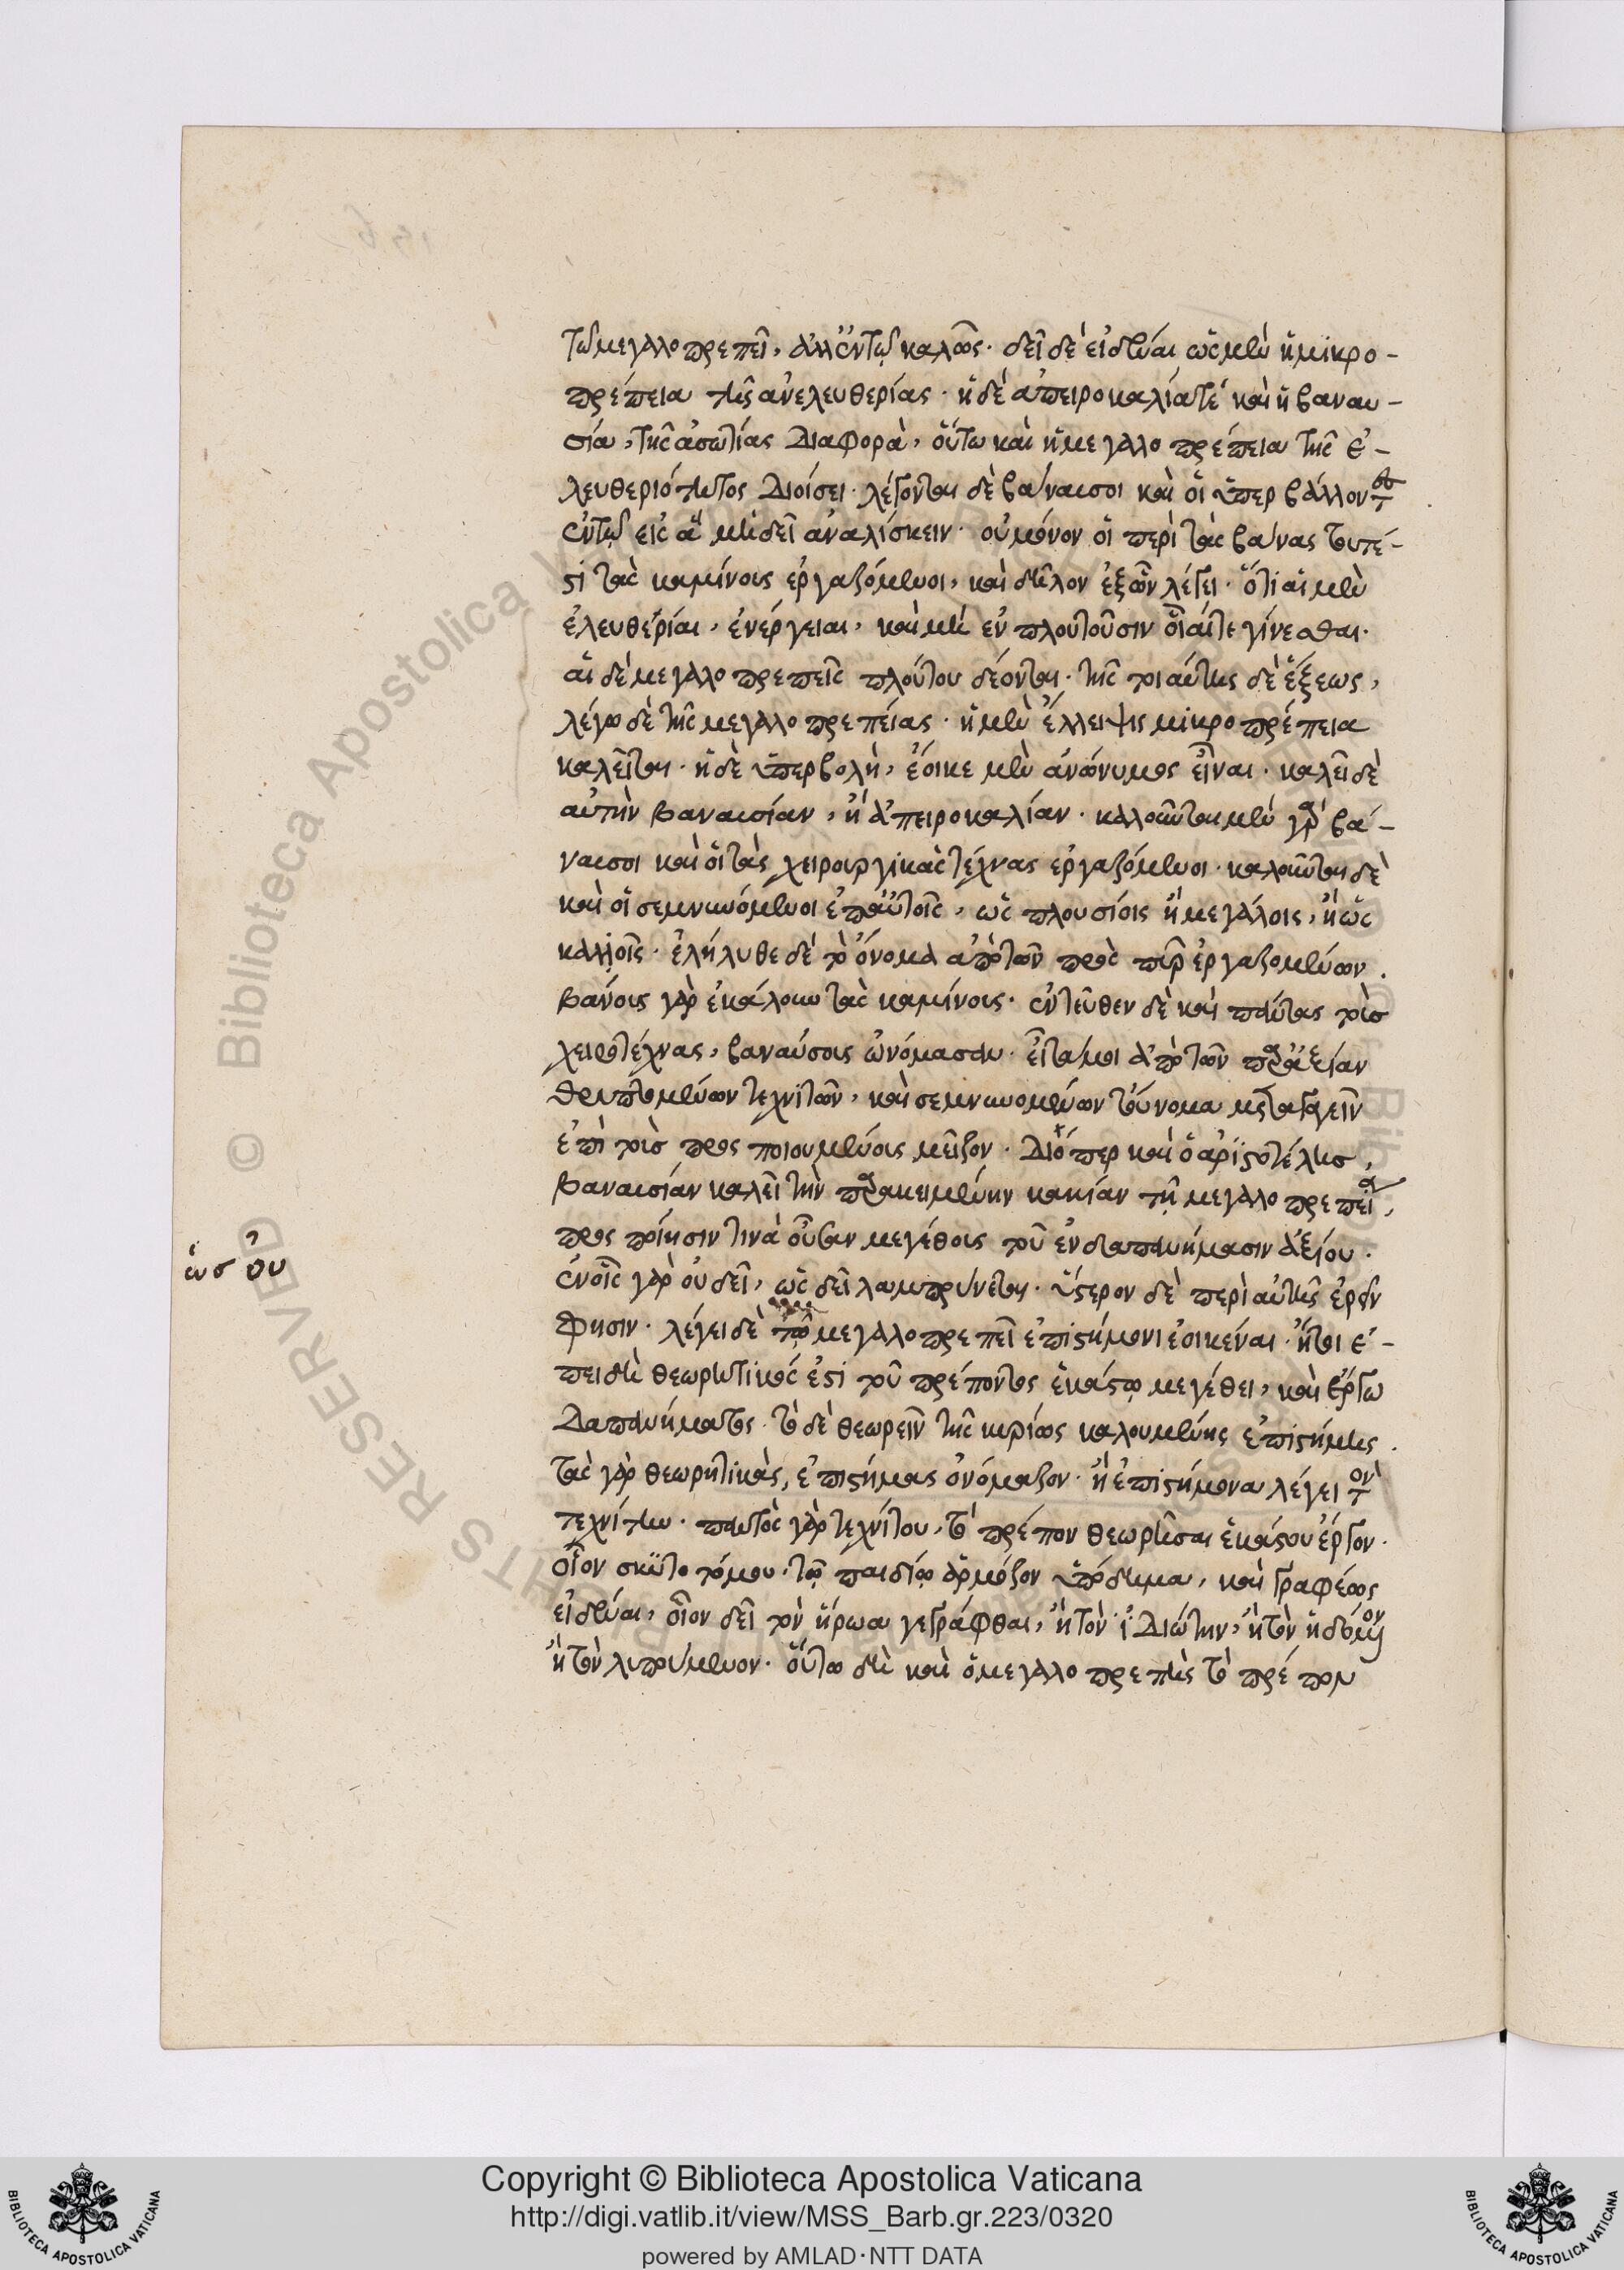 τῶ μεγαλοπρεπεῖ, ἀλλ' ἐν τῷ καλῶς. δεῖ δὲ εἰδέναι ὡς μὲν ἡ μικρο-
πρέπεια τῆς ἀνελευθερίας. ἡ δὲ ἀπειροκαλία τὲ καὶ ἡ βαναυ-
σία, τῆς ἀσωτίας διαφορὰ, οὕτω καὶ ἡ μεγαλοπρέπεια τῆς ἐ-
λευθεριότητος διοίσει. λέγονται δὲ βάναυσοι καὶ οἱ ὑπερβάλλοντες
ἐν τῷ εἰς ἃ μὴ δεῖ ἀναλίσκειν. οὐ μόνον οἱ περὶ τὰς βαύνας τουτέ-
στι τὰς καμίνους ἐργαζόμενοι, καὶ δῆλον ἐξ ὧν λέγει. ὅτι αἱ μὲν
ἐλευθέριαι, ἐνέργειαι, καὶ μὴ ἐν πλουτοῦσιν οἷαί τε γίνεσθαι.
αἱ δὲ μεγαλοπρεπεῖς πλούτου δέονται. τῆς τοιαύτης δὲ ἕξεως,
λέγω δὲ τῆς μεγαλοπρεπείας. ἡ μὲν ἔλλειψις μικροπρέπεια
καλεῖται. ἡ δὲ ὑπερβολὴ, ἔοικε μὲν ἀνώνυμος εἶναι. καλεῖ δὲ
αὐτὴν βαναυσίαν, ἢ ἀπειροκαλίαν. καλοῦνται μὲν γὰρ βά-
ναυσοι καὶ οἱ τὰς χειρουργικὰς τέχνας ἐργαζόμενοι. καλοῦνται δὲ
καὶ οἱ σεμνυνόμενοι ἐπ' αὐτοῖς, ὡς πλουσίοις ἢ μεγάλοις, ἢ ὡς
καλοῖς. ἐλήλυθε δὲ τὸ ὄνομα ἀπὸ τῶν πρὸς πῦρ ἐργαζομένων.
βαύνους γὰρ ἐκάλουν τὰς καμίνους. ἐντεῦθεν δὲ καὶ πάντας τοὺς
χειροτέχνας, βαναύσους ὠνόμασαν. εἶτά μοι ἀπὸ τῶν παρ' ἀξίαν
θρυπτομένων τεχνιτῶν, καὶ σεμνυνομένων τοὔνομα μεταγαγεῖν
ἐπὶ τοὺς προσποιουμένους μεῖζον. διόπερ καὶ ὁ ἀριστοτέλης,
βαναυσίαν καλεῖ τὴν παρακειμένην κακίαν τῇ μεγαλοπρεπείᾳ,
προσποίησιν τινὰ οὖσαν μεγέθους τοῦ ἐν δαπανήμασιν ἀξίου.
ἐν οἷς γὰρ οὐ δεῖ, ὡς δεῖ λαμπρύνεται. ὕστερον δὲ περὶ αὐτῆς ἐρεῖν
φησιν. λέγει δὲ τῷ μεγαλοπρεπεῖ ἐπιστήμονι ἐοικέναι. ἤτοι ἐ-
πειδὴ θεωρητικός ἐστι τοῦ πρέποντος ἑκάστῳ μεγέθει, καὶ ἔργω
δαπανήματος. τὸ δὲ θεωρεῖν τῆς κυρίως καλουμένης ἐπιστήμης.
τὰς γὰρ θεωρητικὰς, ἐπιστήμας ὀνόμαζον. ἢ ἐπιστήμονα λέγει τὸν
τεχνίτην. παντὸς γὰρ τεχνίτου, τὸ πρέπον θεωρῆσαι ἑκάστου ἔργον.
οἷον σκυτοτόμου. τῷ παιδίῳ ἁρμόζον ὑπόδημα, καὶ γραφέως
εἰδέναι, οἷον δεῖ τὸν ἥρωα γεγράφθαι, ἢ τὸν ἰδιώτην, ἢ τὸν ἡδόμενον
ἢ τὸν λυπούμενον. οὕτω δὴ καὶ ὁ μεγαλοπρεπὴς τὸ πρέπον
ὡσ οὐ
Copyright © Biblioteca Apostolica Vaticana
http://digi.vatlib.it/view/MSS_Barb.gr.223/0320
powered by AMLAD·NTT DATA
BIBLIOTECA APOSTOLICA VATICANA
BIBLIOTECA APOSTOLICA VATICANA